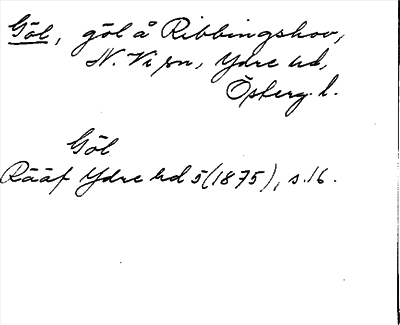 Göl, göl å Ribbingshov,
N. Vi sn, Ydre hd,
Österg. l.
Göl
Rääf Ydre hd 5 (1875), s. 16.